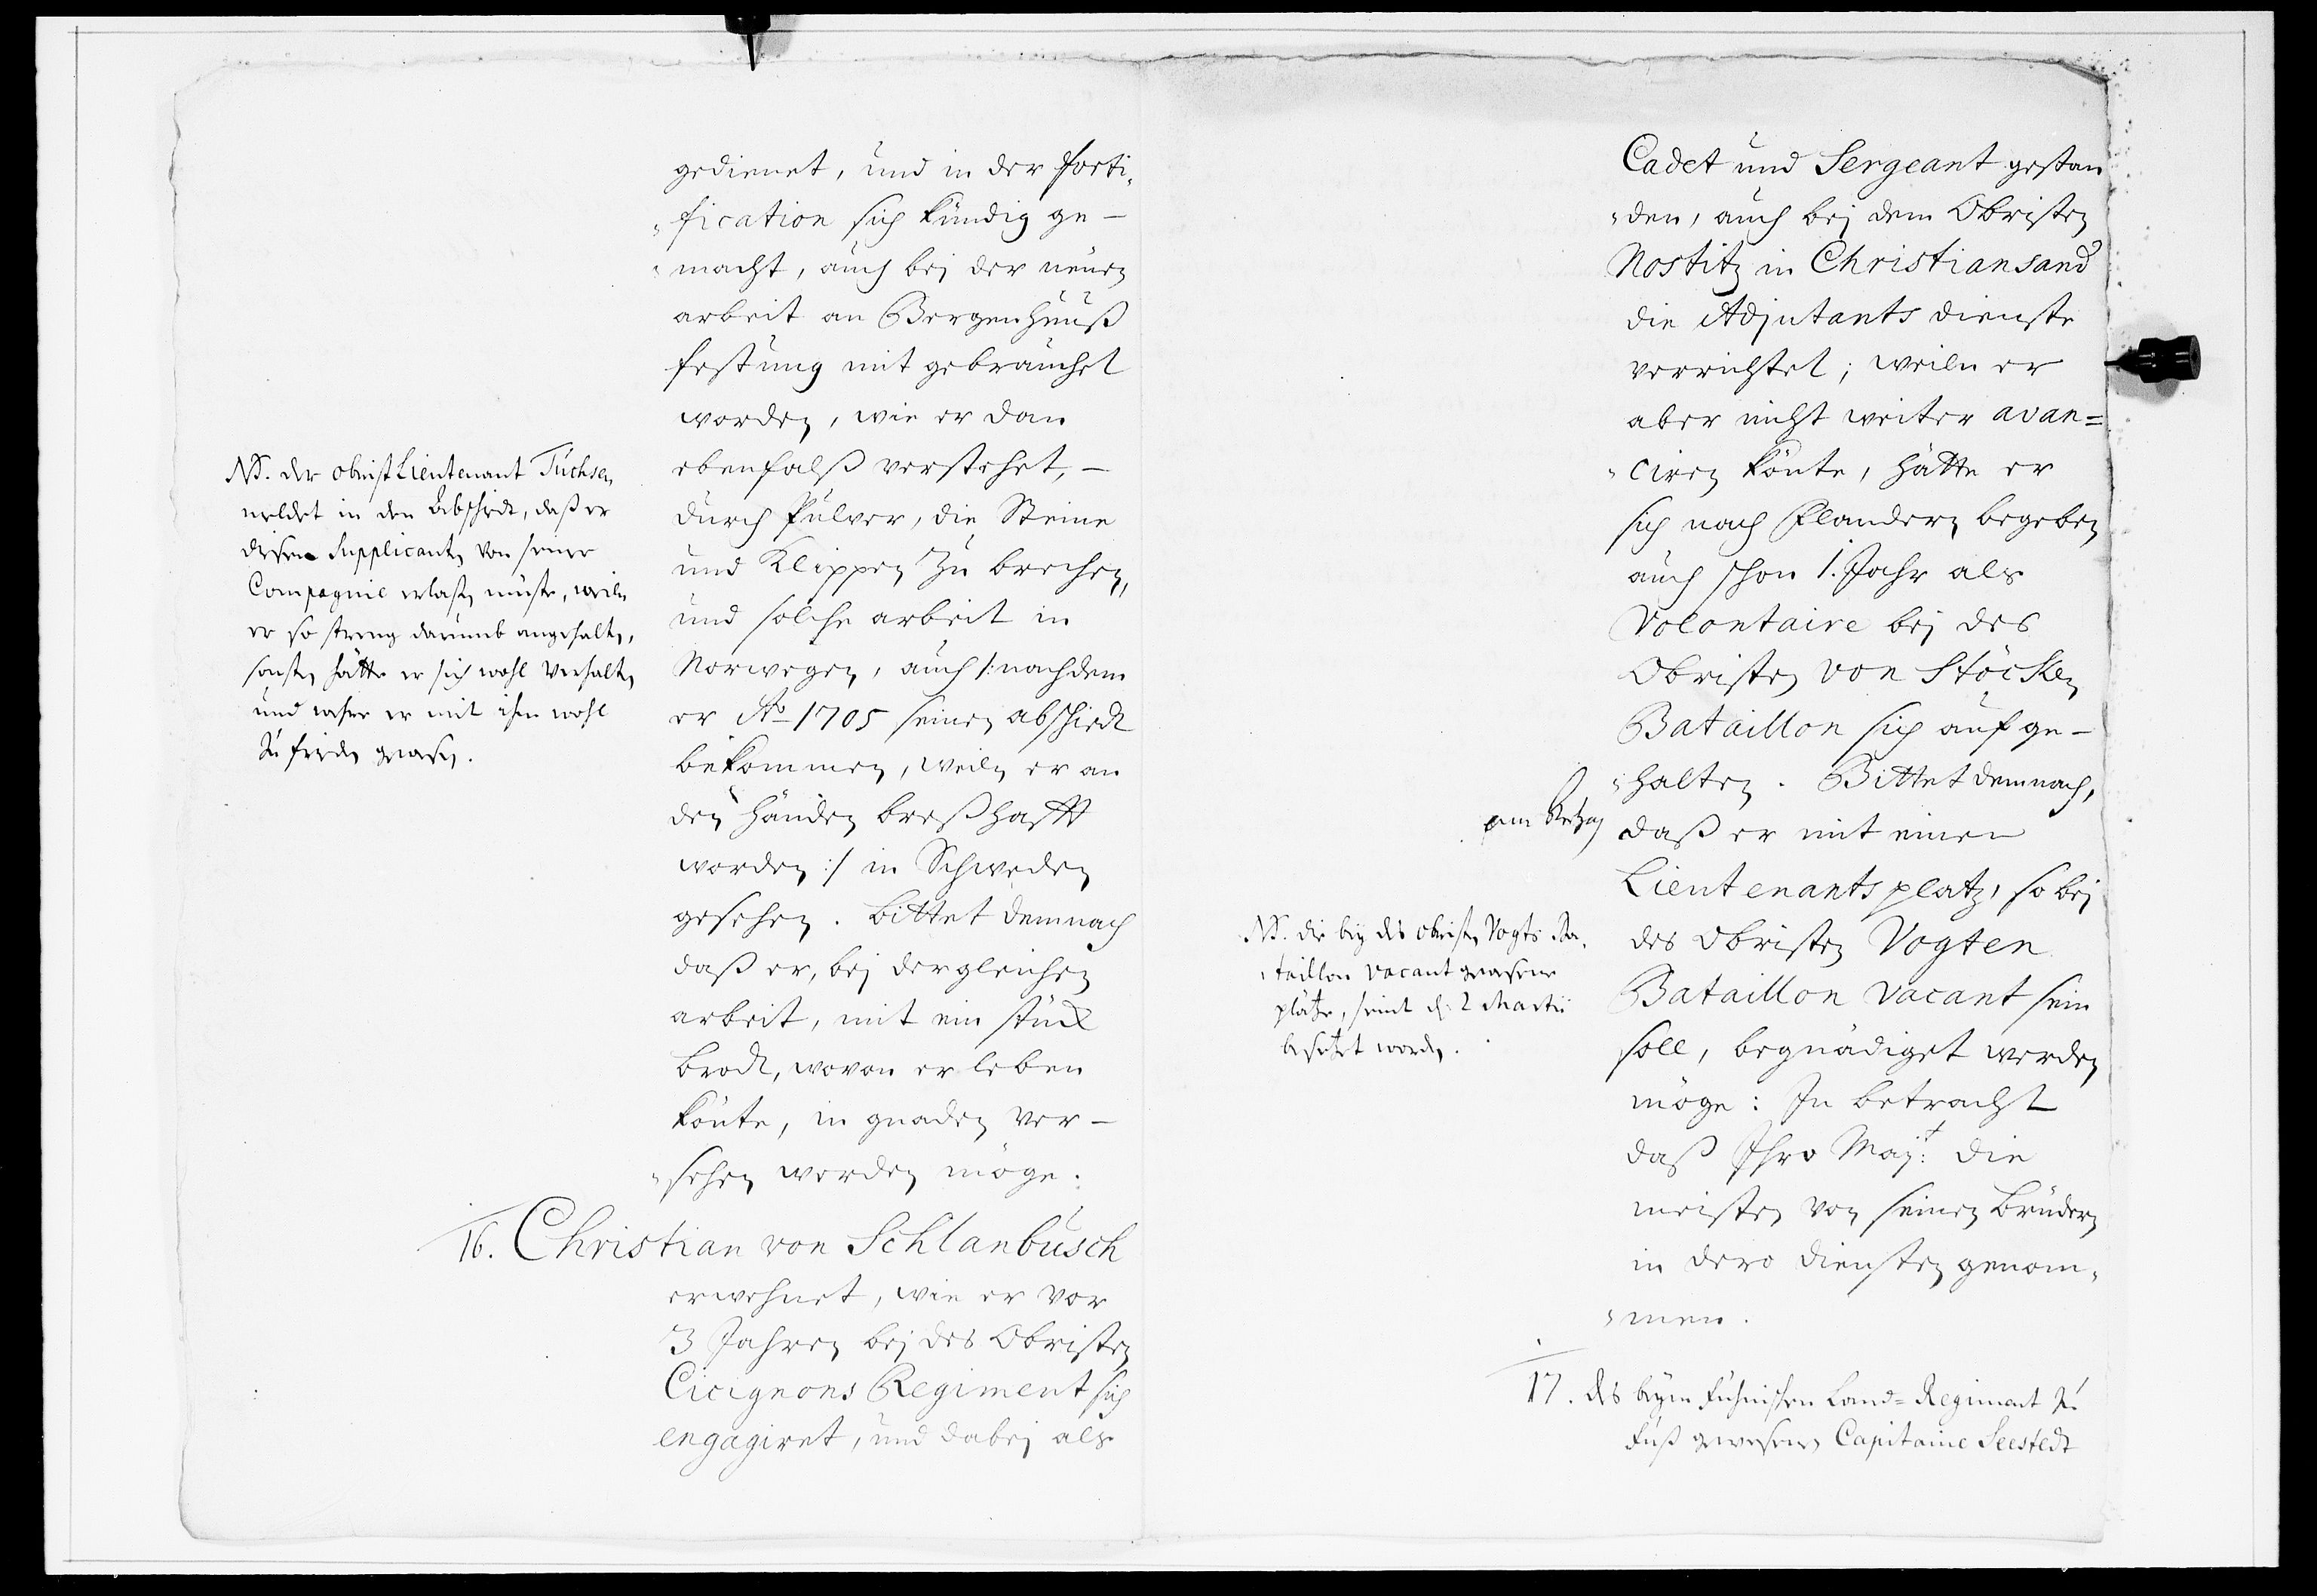 gedienet, und in der forti-
fication sich kündig ge-
macht, auch bej der neuen
arbeit an Bergenhuuß
festung mit gebrauchet
worden, wie er dan
ebenfalß verstehet, -
durch Pulver, die Steine
und Klippen zu brechen,
und solche arbeit in
Norwegen, auch /: nachdem
er Ao 1705 seinen abschiedt
bekommen, weiln er an
den Händen breßhafft
worden :/ in Schweden
gesehen. bittet demnach
daß er, bej dergleichen
arbeit, mit ein stück
brodt, wovon er leben
könte, in gnaden ver-
sehen werden möge.
NB. der obrist Lieutenant Tuchsen
meldet in den Abschiedt, daß er
diesen Supplicanten von seiner
Compagnie erlaßen müste, weiln
er so streng darumb angehalten,
sonsten hätte er sich wohl verhalten
und wehre er mit ihm wohl
zu frieden gewesen.
16. Christian von Schlanbusch
erwehnet, wie er vor
3 Jahren bej des Obristen
Cicignons Regiment sich
engagiret, und dabej als
Cadet und Sergeant gestan
den, auch bej dem Obristen
Nostitz in Christiansand
die Adjutants dienste
verrichtet; weiln er
aber nicht weiter avan=
ciren könte, hätte er
sich nach Flandern begeben
auch schon 1. Jahr als
Volontaire bej des
Obristen von Stöcken
Bataillon sich aufge-
halten. Bittet demnach,
daß er mit einen
Lieutenants platz, so bej
des Obristen Vogten
Bataillon vacant sein
soll, begnädiget werden
möge: In betracht
daß Ihro Majt: die
meisten von seinen Brüdern
in dero diensten genom-
men.
NB. die bey des obristen Vogts Ba-
taillon vacant gewesene
plätze, seint d. 2 Martii
besetzet worden.
17. des beym Fühnischen Land=Regiment zu
Fuß gewesenen Capitaine Seestedt